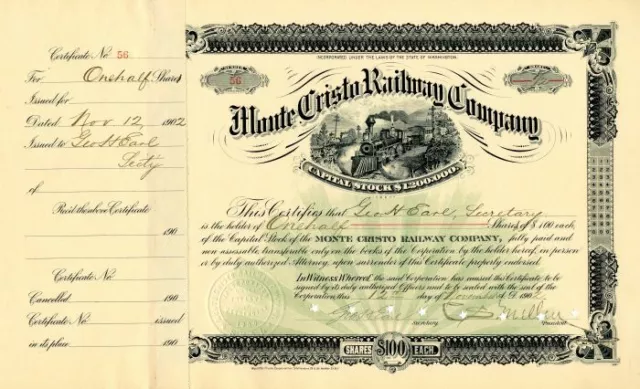 Certificate No. 56
For Onehalf Shares
Issued for
Dated Nov 12 1902
Issued to Geo H Earl
Secty
of
Rec'd the above Certificate
190
Certificate No.
Cancelled 190
Certificate No. issued
in its place 190
INCORPORATED UNDER THE LAWS OF THE STATE OF WASHINGTON.
56
Monte Cristo Railway Company
CAPITAL STOCK $1,200,000.
This Certifies that Geo H Earl, Secretary
is the holder of Onehalf Shares of $100 each,
of the Capital Stock of the MONTE CRISTO RAILWAY COMPANY, fully paid and
non assessable transferable only on the books of the Corporation by the holder hereof, in person
or by duly authorized Attorney, upon surrender of this Certificate properly endorsed.
In Witness Whereof, the said Corporation has caused this Certificate to be
signed by its duly authorized Officers and to be sealed with the seal of the
Corporation, this 12th day of November A.D. 1902
Secretary President
SHARES $100 EACH